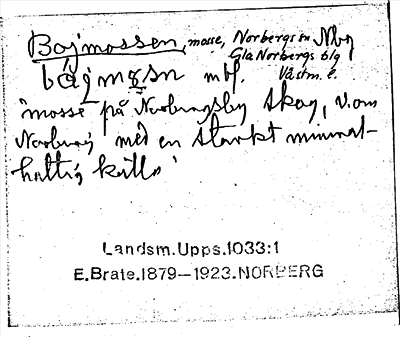 Bojmossen, mosse, Norbergs sn Nbg
Gla Norbergs blg
Västm. l.
bå̀jmǫsn mbf.
"mosse på Norbergsby skog, v. om
Norberg med en starkt mineral-
haltig källa"
Landsm.Upps.1033:1
E.Brate.1879—1923.NORBERG